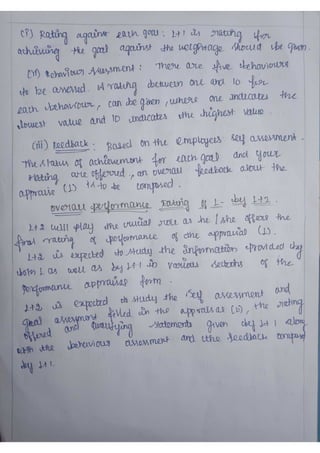 (i) Rating against each goal: L+1 is rating for
achieving the goal against the weightage should be given.
(ii) Behaviour Assessment: There are five behaviours
to be assessed. A rating between one and 10 for
each behaviour, can be given, where one indicates the
lowest value and 10 indicates the highest value.
(iii) Feedback: Based on the employees self assessment.
The status of achievement for each goal and your
rating are offered, an overall feedback about the
appraise (L) is to be composed.
Overall performance Rating of L - by L+2.
L+2 will play the crucial role as he/she offers the
final rating of performance of the appraisal (L).
L+2 is expected to study the information provided by
both L as well as by L+1 in various sections of the
performance appraisal form.
L+2 is expected to study the self assessment and
goal assessment filled in the appraisas (L), the rating
offered and qualifying statements given by L+1 along
with the behaviour assessment and the feedback composed
by L+1.